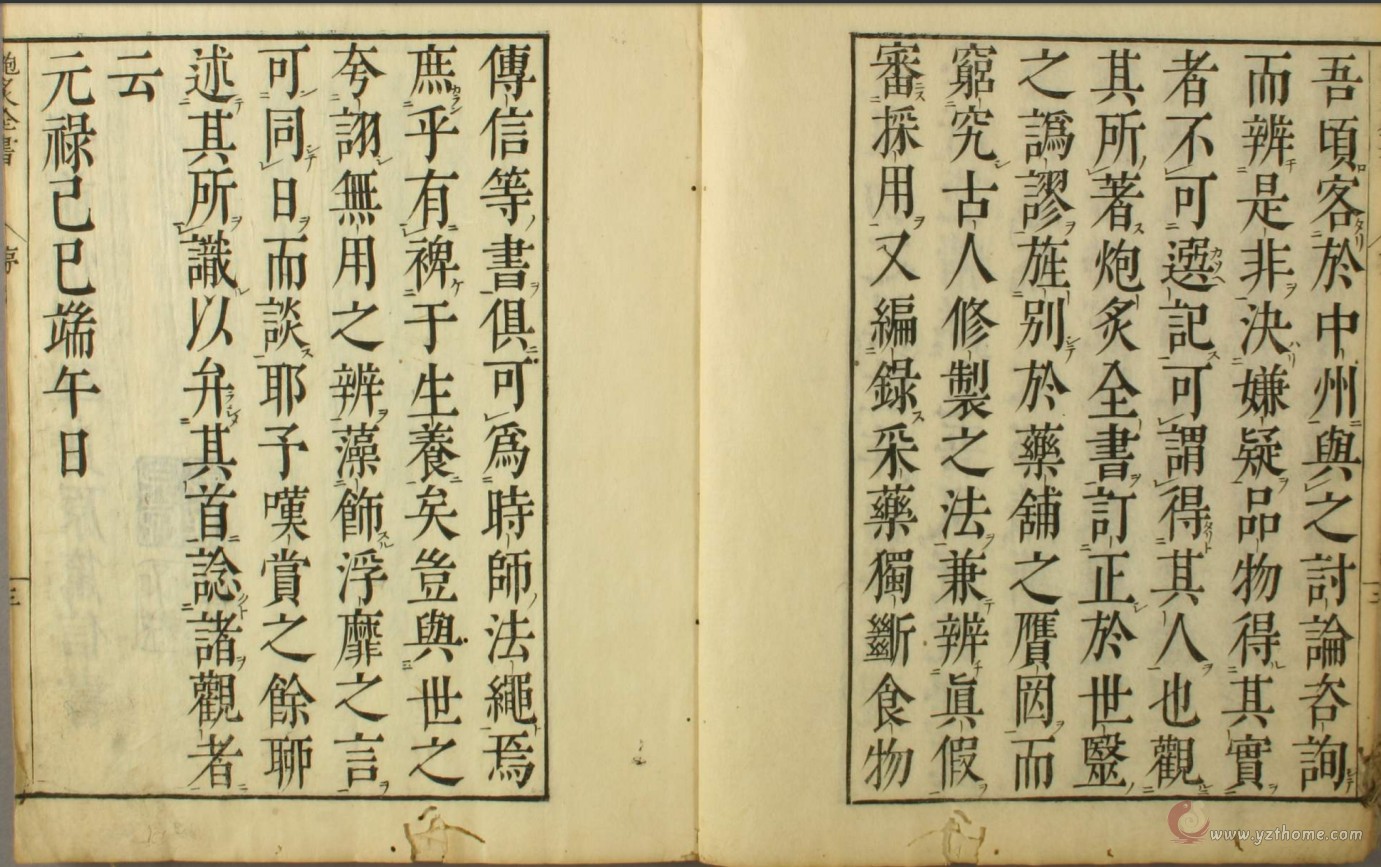 吾頃客於中州與之討論咨詢
而辨是非決嫌疑品物得其實
者不可選記可謂得其人也觀
其所著炮炙全書訂正於世毉
之譌謬旌別於藥舖之贋而
窮究古人修製之法兼辨眞假
審採用又編錄采藥獨斷食物
傳信等書俱可爲時師法繩焉
庶乎有裨于生養矣豈與世之
夸詡無用之辨藻飾浮靡之言
可同日而談耶予嘆賞之餘聊
述其所識以弁其首諗諸觀者
云
元祿己巳端午日
炮炙全書 序
三
www.yzthome.com